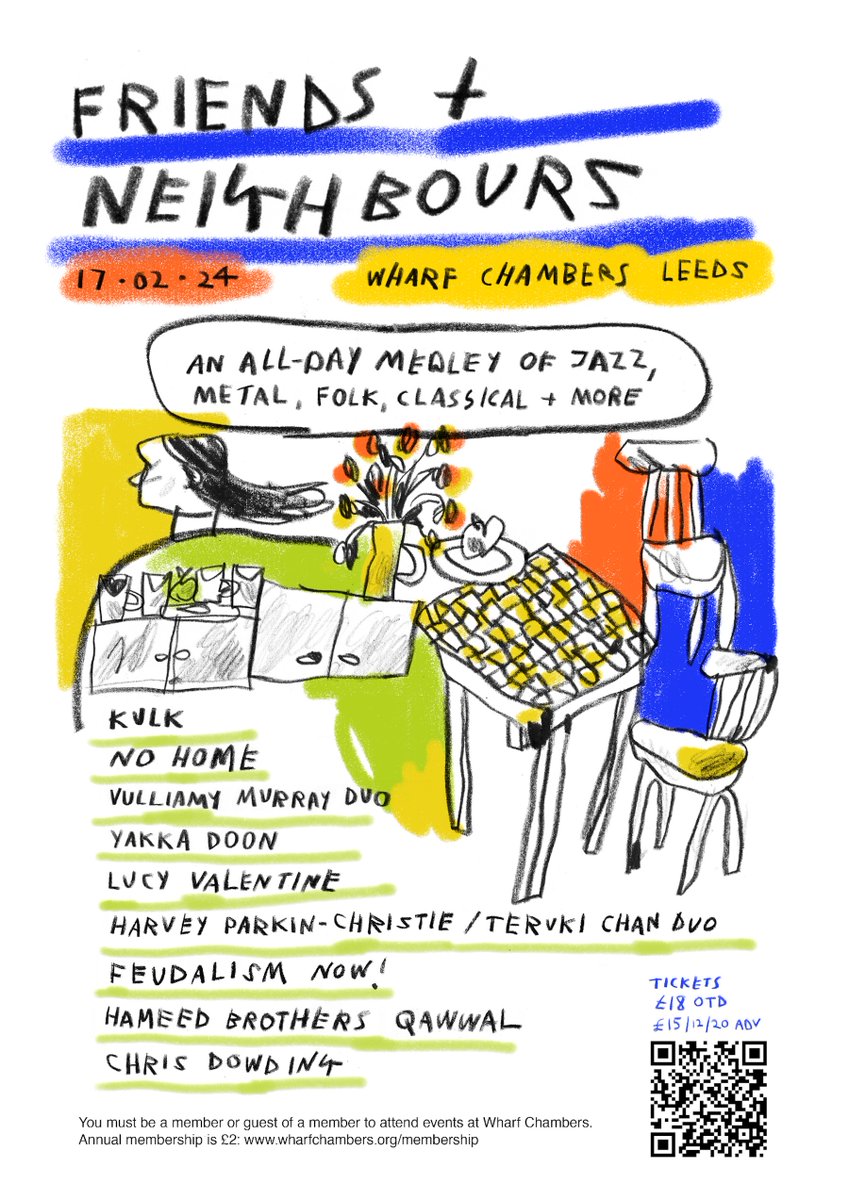 FRIENDS +
NEIGHBOURS
17·02·24
WHARF CHAMBERS LEEDS
AN ALL-DAY MEDLEY OF JAZZ,
METAL, FOLK, CLASSICAL + MORE
KULK
NO HOME
VULLIAMY MURRAY DUO
YAKKA DOON
LUCY VALENTINE
HARVEY PARKIN-CHRISTIE / TERUKI CHAN DUO
FEUDALISM NOW!
HAMEED BROTHERS QAWWAL
CHRIS DOWDING
TICKETS
£18 OTD
£15/12/20 ADV
You must be a member or guest of a member to attend events at Wharf Chambers.
Annual membership is £2: www.wharfchambers.org/membership